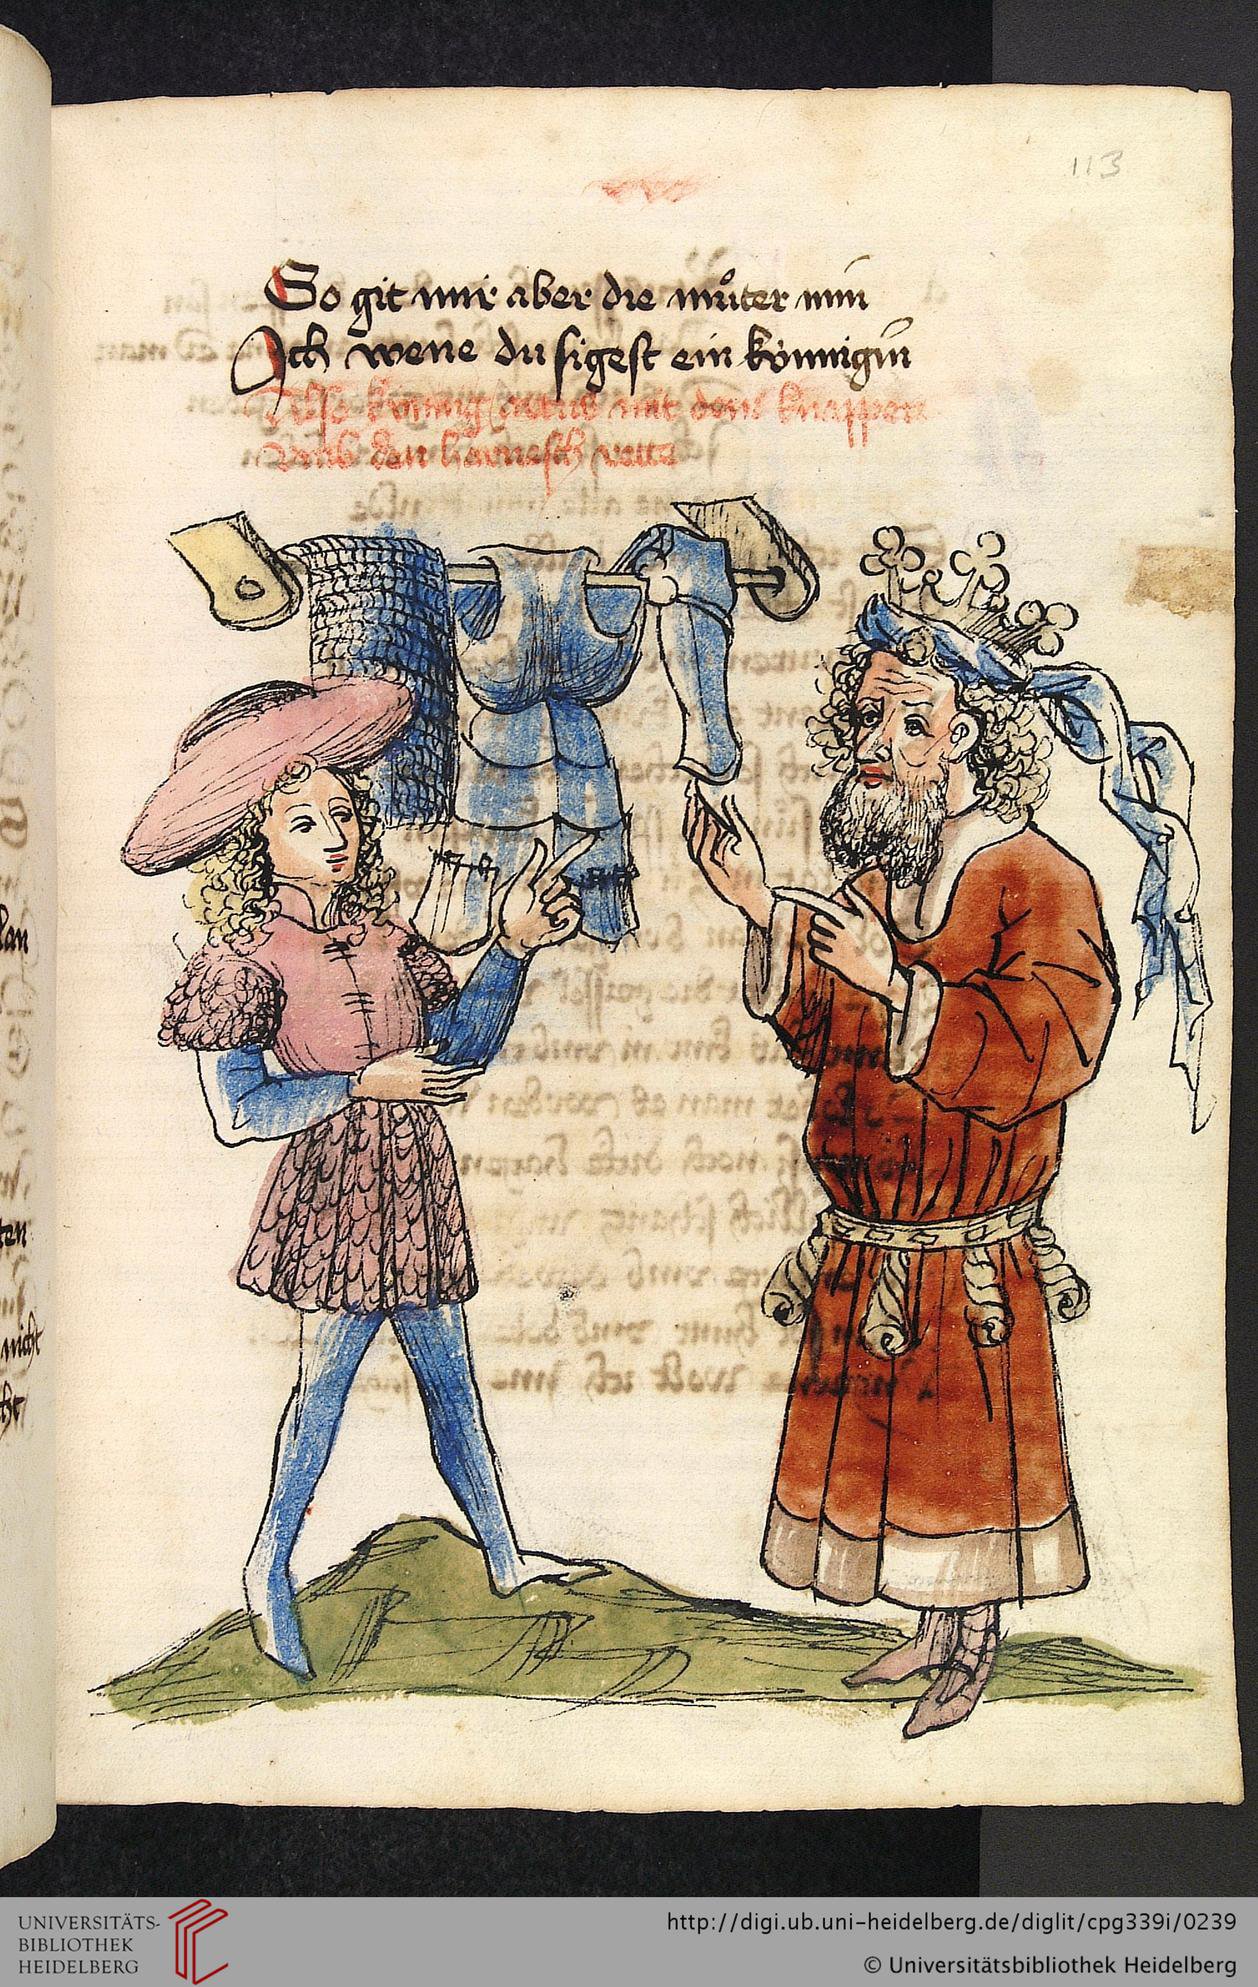 113
So git mir aber die muͦter min
Ich wene du sigest ein kónnigin
Also kónnig artus mit dem knappen
vmb den harnesch rette
lan
ten
nicht
UNIVERSITÄTS-
BIBLIOTHEK
HEIDELBERG
http://digi.ub.uni-heidelberg.de/diglit/cpg339i/0239
© Universitätsbibliothek Heidelberg